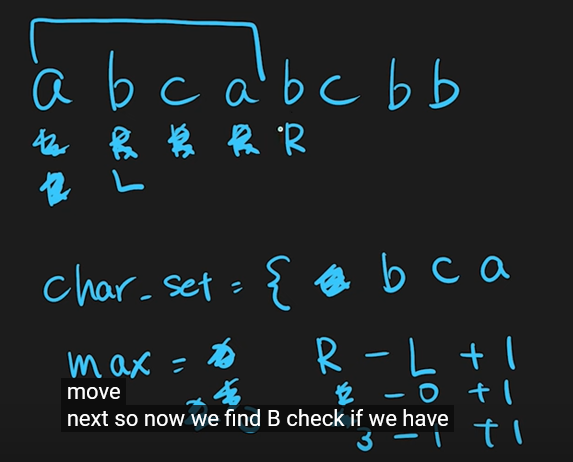 a b c a b c b b
R
L
char_set = { b c a
max = R - L + 1
- 0 + 1
3 - 1 + 1
move
next so now we find B check if we have